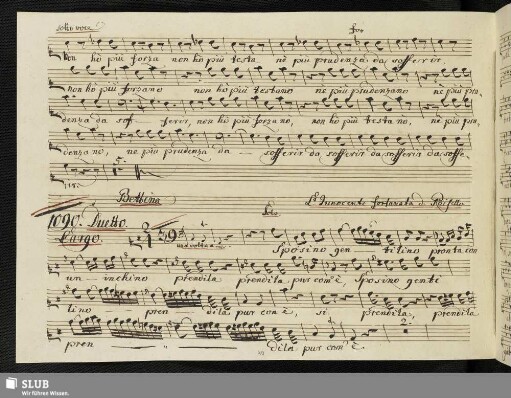 sotto voce
non hò più forza non hò più testa nè più prudenza da sofferir
non hò più forza no non hò più testa no nè più prudenza no nè più pru,
denza da soff ferir, non hò più forza no, non hò più testa no, nè più,
denza no, nè più prudenza da sofferir da sofferir da sofferir da soffe,
rir.
Bettina
L'Innocente fortunata di Paisello
1090. Duetto.
Largo.
Sposino gen tilino pronta con
un inchino prendila prendila pur com'è, Sposino genti
lino pren dila pur com'è, si prendila, prendila
pren dila pur com'è.
SLUB
Wir führen Wissen.